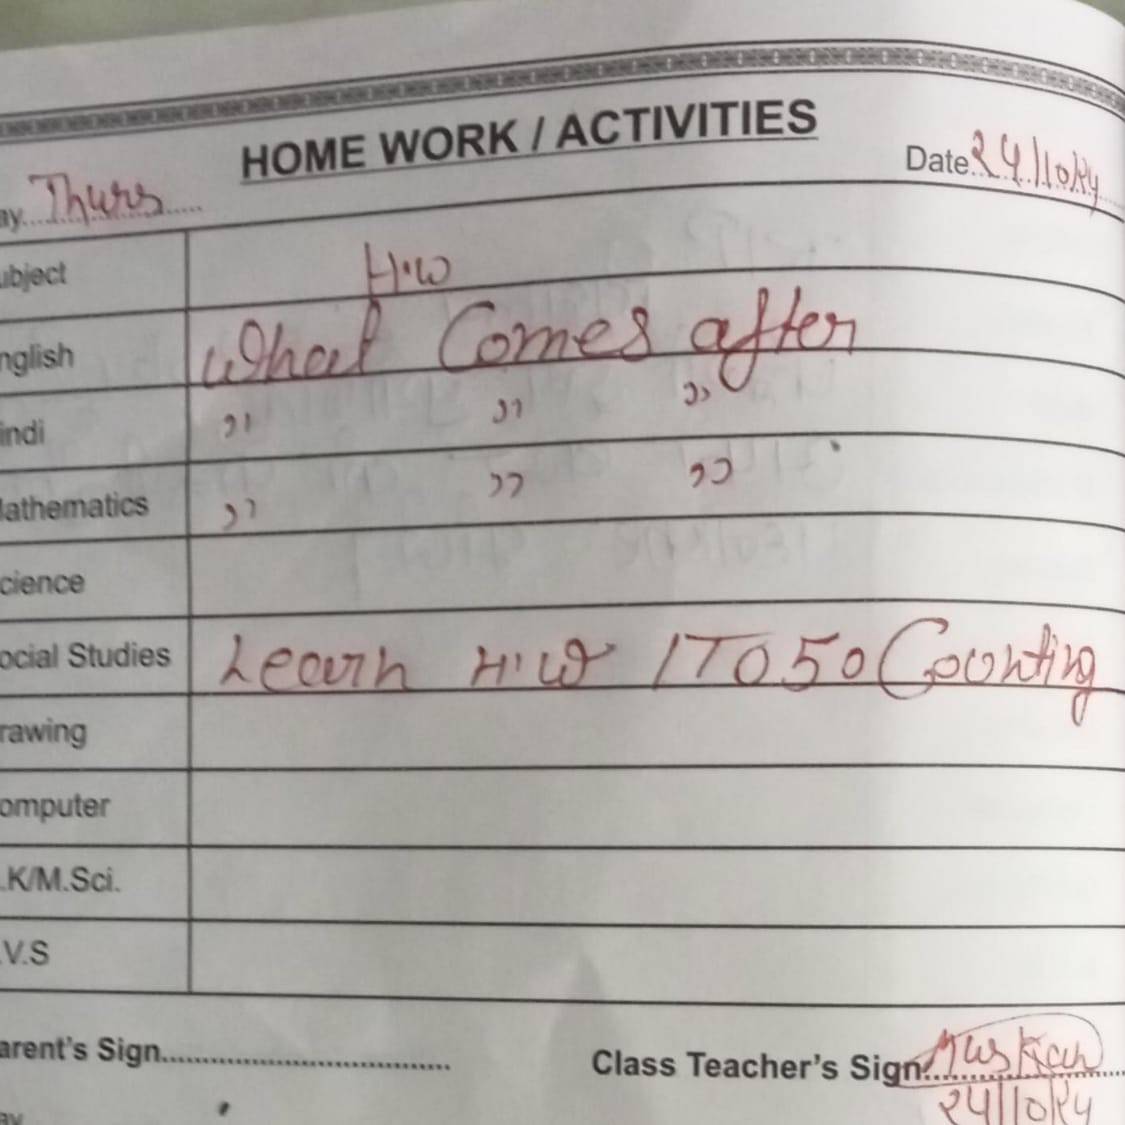 HOME WORK / ACTIVITIES
ay Thurs Date 24/10/24
ubject H.W
nglish What Comes after
indi " " "
athematics " " "
cience
ocial Studies Learn H.W 1 TO 50 Counting
rawing
omputer
.K/M.Sci.
.V.S
arent's Sign
Class Teacher's Sign Muskan
24/10/24